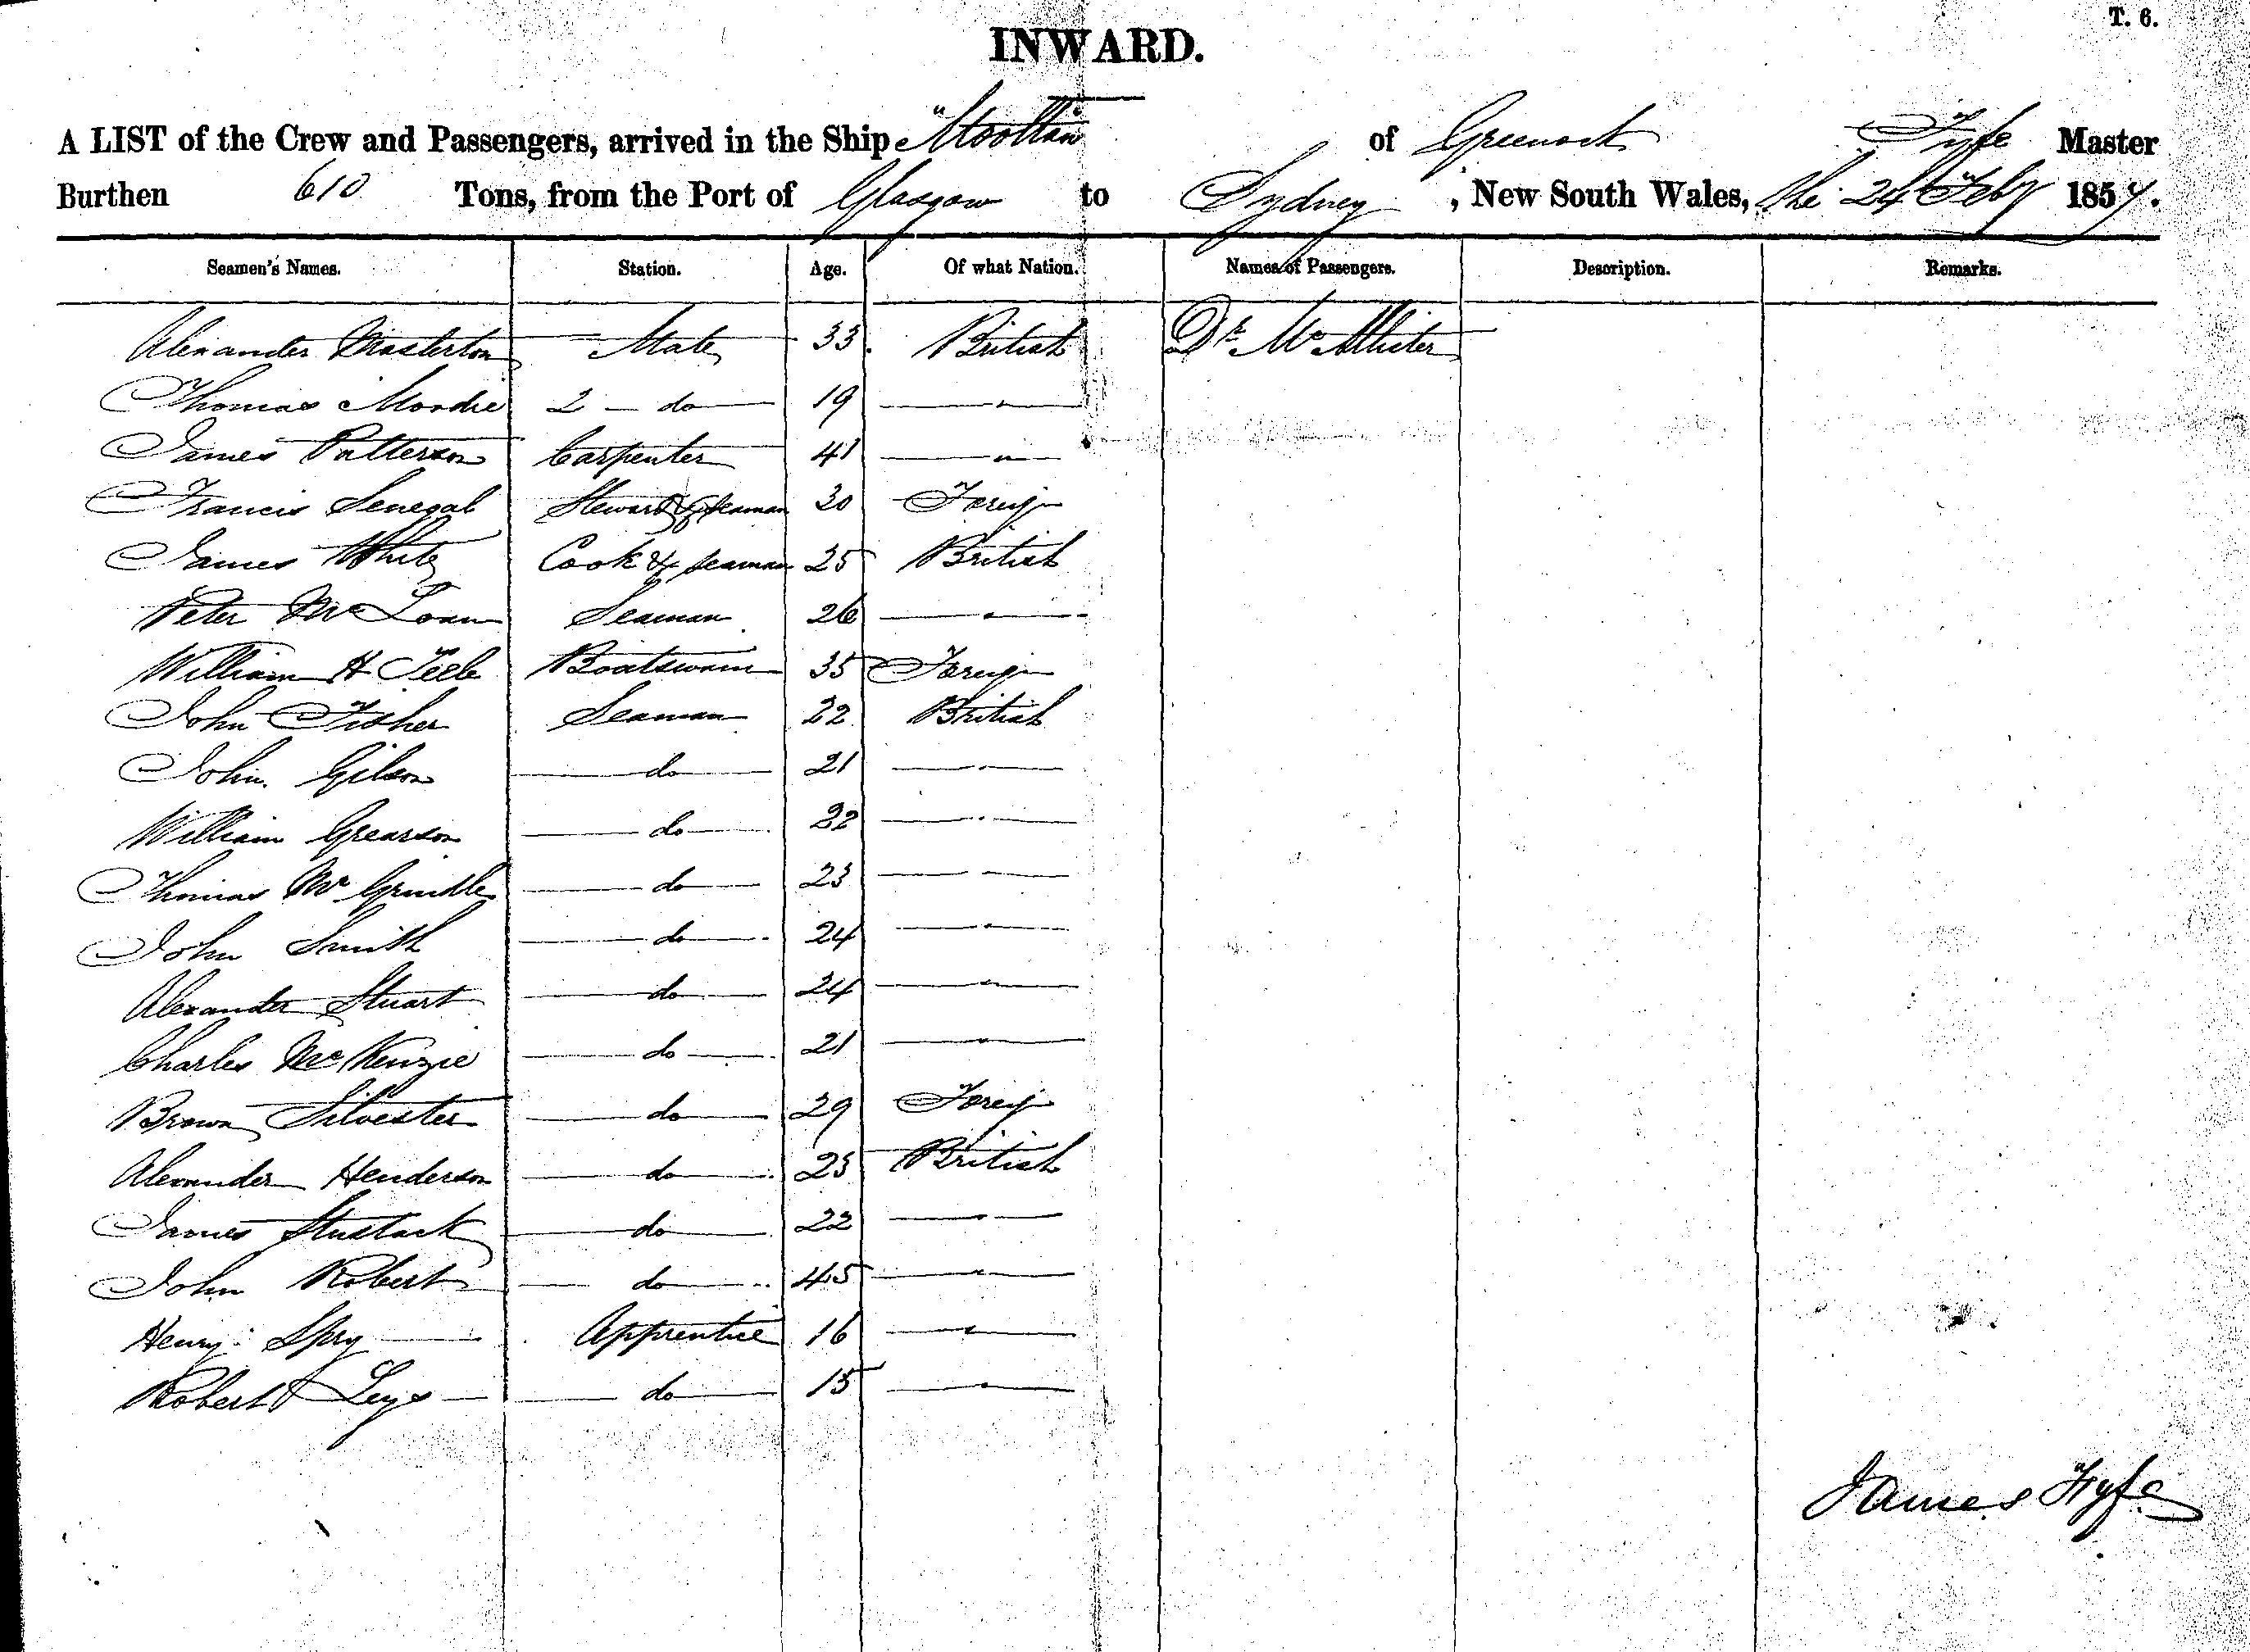 T. 6.
INWARD.
A LIST of the Crew and Passengers, arrived in the Ship "Mooltan" of Greenock Fyfe Master
Burthen 610 Tons, from the Port of Glasgow to Sydney, New South Wales, the 24 Feby 1857.
Seamen's Names. Station. Age. Of what Nation. Names of Passengers. Description. Remarks.
Alexander Masterton Mate 33. British Dr. McAllister
Thomas Moodie 2 — do — 19 — " —
James Patterson Carpenter 41 — " —
Francis Senegal Steward & Seaman 30 Foreign
James White Cook & seaman 25 British
Peter Mc Seaman 26 — " —
William H Boatswain 35 Foreign
John Fisher Seaman 22 British
John Gibson — do — 21 — " —
William Grearson — do — 22 — " —
Thomas Mc Grindle — do — 23 — —
John Smith — do — 24 — " —
Alexander Stuart — do — 24 — " —
Charles McKenzie — do — 21 — " —
Brown Silvester — do — 29 Foreign
Alexander Henderson — do — 25 British
James — do — 22 — " —
John Robert — do — 45 — " —
Henry Spry — Apprentice 16 — " —
Robert Leys — do — 15 — " —
James Fyfe